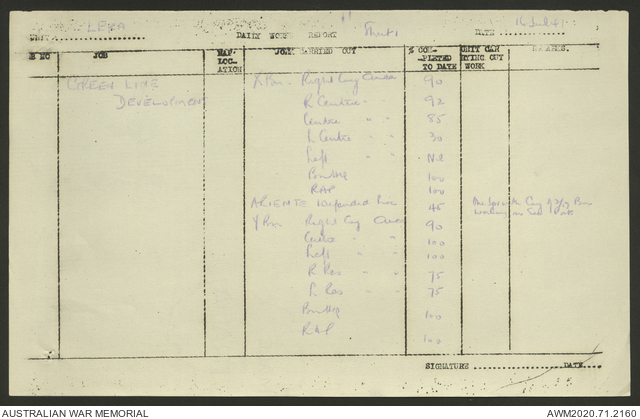 UNIT LERA DAILY WORK REPORT Sheet 1 DATE 16 Jul 41
E NO JOB MAP LOC-ATION WORK CARRIED OUT % COM-PLETED TO DATE UNIT CAR RYING OUT WORK REMARKS.
GREEN LINE X Bn - Right Coy Area 90
DEVELOPMENT R Centre " 92
Centre " " 85
L Centre " " 30
Left " " Nil
Bn HQ 100
RAP 100
ARIEMTE Defended 45
Y Bn Right Coy Area 90
Centre " " 100
Left " " 100
R Res " " 75
L Res " " 75
Bn HQ 100
RAP 100
SIGNATURE DATE
AUSTRALIAN WAR MEMORIAL AWM2020.71.2160